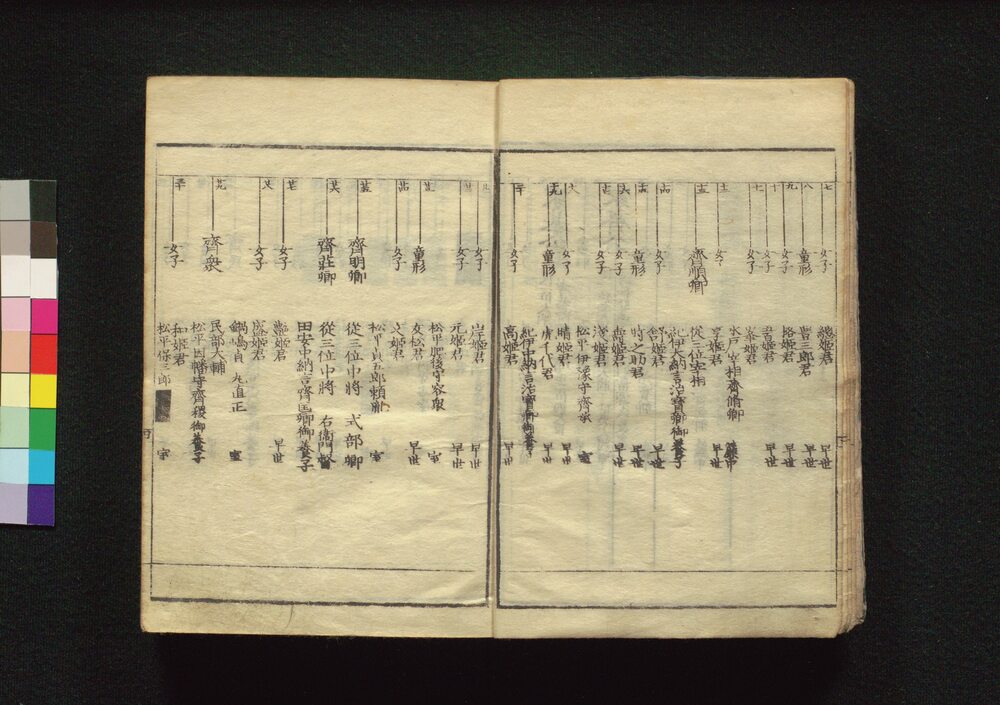 七
女子
總姫君
早世
八
童形
豊三郎君
早世
九
女子
格姫君
早世
十
女子
早世
十一
女子
峯姫君
水戸宰相齊脩卿
簾中
十二
女子
亨姫君
早世
十三
齊順卿
從三位宰相
紀伊大納言治寶卿御養子
十四
女子
舒姫君
早世
十五
童形
時之助君
早世
十六
女子
壽姫君
早世
十七
女子
浅姫君
松平伊豫守齊承
室
十八
女子
晴姫君
早世
十九
童形
早世
二十
女子
高姫君
早世
女子
岸姫君
早世
女子
元姫君
早世
松平肥後守容衆
室
童形
友松君
早世
女子
文姫君
松平貞五郎頼胤
室
齊明卿
從三位中將 式部卿
齊荘卿
從三位中將 右衛門督
田安中納言齊匡卿御養子
女子
艶姫君
早世
女子
盛姫君
鍋嶋貞丸直正
室
齊衆
民部大輔
松平因幡守齊稷御養子
女子
和姫君
松平保三郎
室